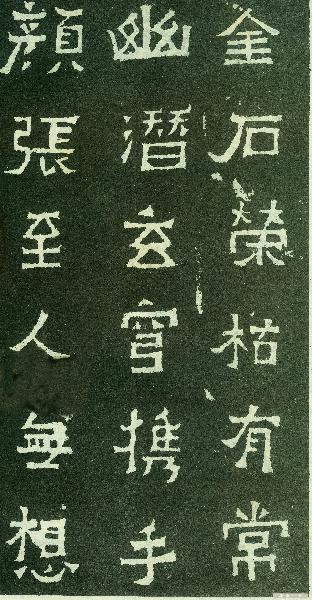 金石榮枯有常
幽潜玄穹携手
顏張至人無想